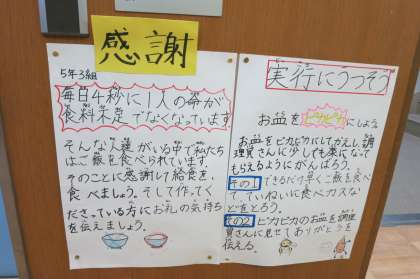 感謝
5年3組
毎日4秒に1人の命が
食料不足でなくなっています
そんな人達がいる中で私たち
はご飯を食べられています。
そのことに感謝して給食を、
食べましょう。そして作ってく
ださっている方にお礼の気持ち
を伝えましょう。
実行にうつそう
お皿をピカピカにしよう
お皿をピカピカにしてかえし、調
理員さんに少しでも楽になって
もらえるようにがんばろう。
その1 できるだけ早くご飯を食べ
て、ていねいに食べカスな
どをとろう。
その2 ピカピカのお皿を調理
員さんに見せてありがとうを
伝える。